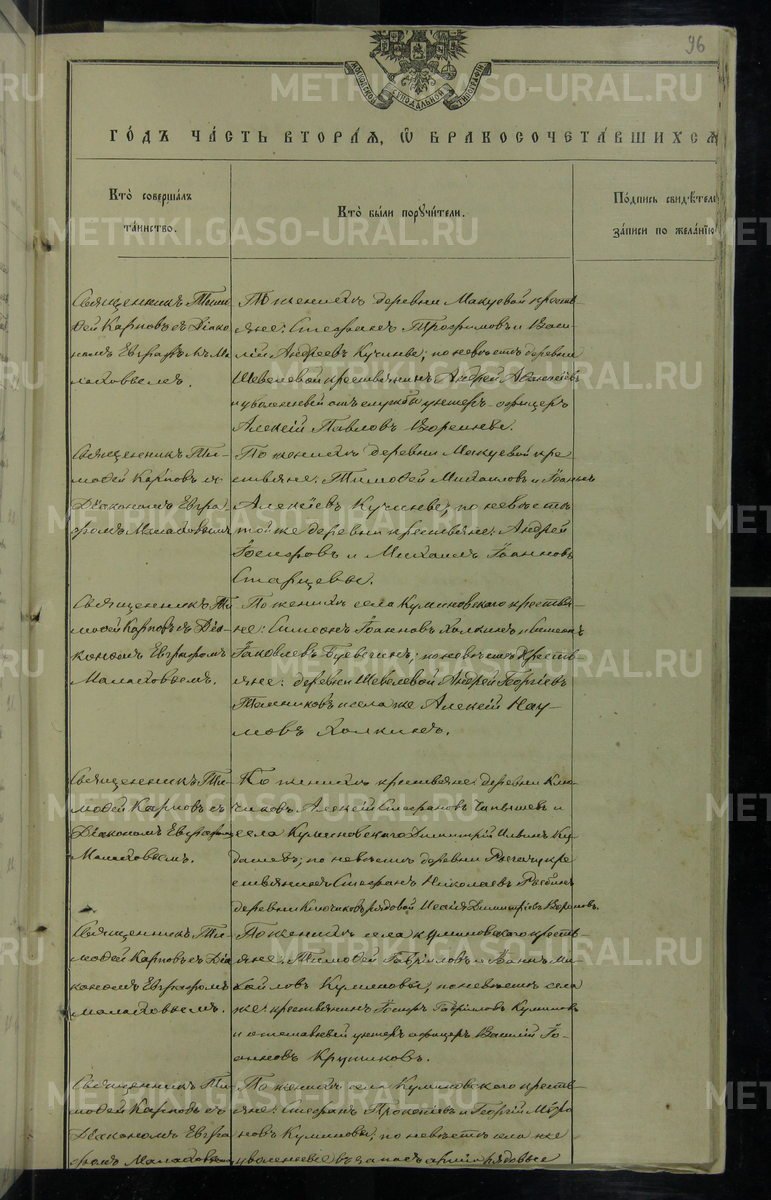 96
СѴНОДАЛЬНОЙ ТИПОГРАФІИ
ГОДЪ ЧАСТЬ ВТОРАЯ, Ѡ БРАКОСОЧЕТАВШИХСЯ
Кто совершалъ
таинство.
Кто были поручители.
Подпись свидѣтеле
записи по желанію
Священникъ Тимо
ѳей Карповъ съ Діако
номъ Евграфомъ Ма
лаховымъ.
По женихѣ деревни Макуевой кресть
яне: Стефанъ Трофимовъ и Васи
лій Андреевъ Кучины; по невѣстѣ деревни
Шевелевой крестьянинъ Андрей
и уволенный отъ службы унтеръ-офицеръ
Алексій Павловъ
Священникъ Ти-
моѳей Карповъ съ
Діакономъ Евгра-
фомъ Малаховымъ
По женихѣ деревни Макуевой кре
стьяне: Тимоѳей Михаиловъ и Іоаннъ
Алексіевъ Кучины; по невѣстѣ
той же деревни крестьяне: Андрей
и Михаилъ Іоанновъ
Старцевы.
Священникъ Ти
моѳей Карповъ съ Діа-
кономъ Евграфомъ
Малаховымъ.
По женихѣ села Куминовскаго крестья-
не: Симеонъ Іоанновъ Холкинъ и
Іаковлевъ по невѣстѣ кресть
яне: деревни Шевелевой Андрей Георгіевъ
и села же Алексій Нау-
мовъ Холкинъ.
Священникъ Ти-
моѳей Карповъ съ
Діакономъ Евграфомъ
Малаховымъ.
По женихѣ крестьяне: деревни Клю
чиковъ Алексій Стефановъ Чапышевъ и
села Куминовскаго Димитрій Ильинъ Ку
по невѣстѣ деревни кре
стьянинъ Стефанъ Николаевъ
деревни Ключиковъ рядовой Исаія Димитріевъ Вороновъ.
Священникъ Ти-
моѳей Карповъ съ Діа
кономъ Евграфомъ
Малаховымъ.
По женихѣ села Куминовскаго кресть-
яне: Тимоѳей Гавріиловъ и Іоаннъ Ми-
хайловъ Кумины; по невѣстѣ села
же крестьянинъ Гавріиловъ Куминовъ
и отставной унтеръ офицеръ Василій Іо-
анновъ Крутиковъ.
Священникъ Ти
моѳей Карповъ съ
Діакономъ Евгра
фомъ Малаховымъ
По женихѣ села Куминовскаго кресть-
яне: Стефанъ Прокопіевъ и Георгій Миро
новъ Кумины; по невѣстѣ села же
уволенные въ запасъ арміи рядовые
METRIKI.GASO-URAL.RU